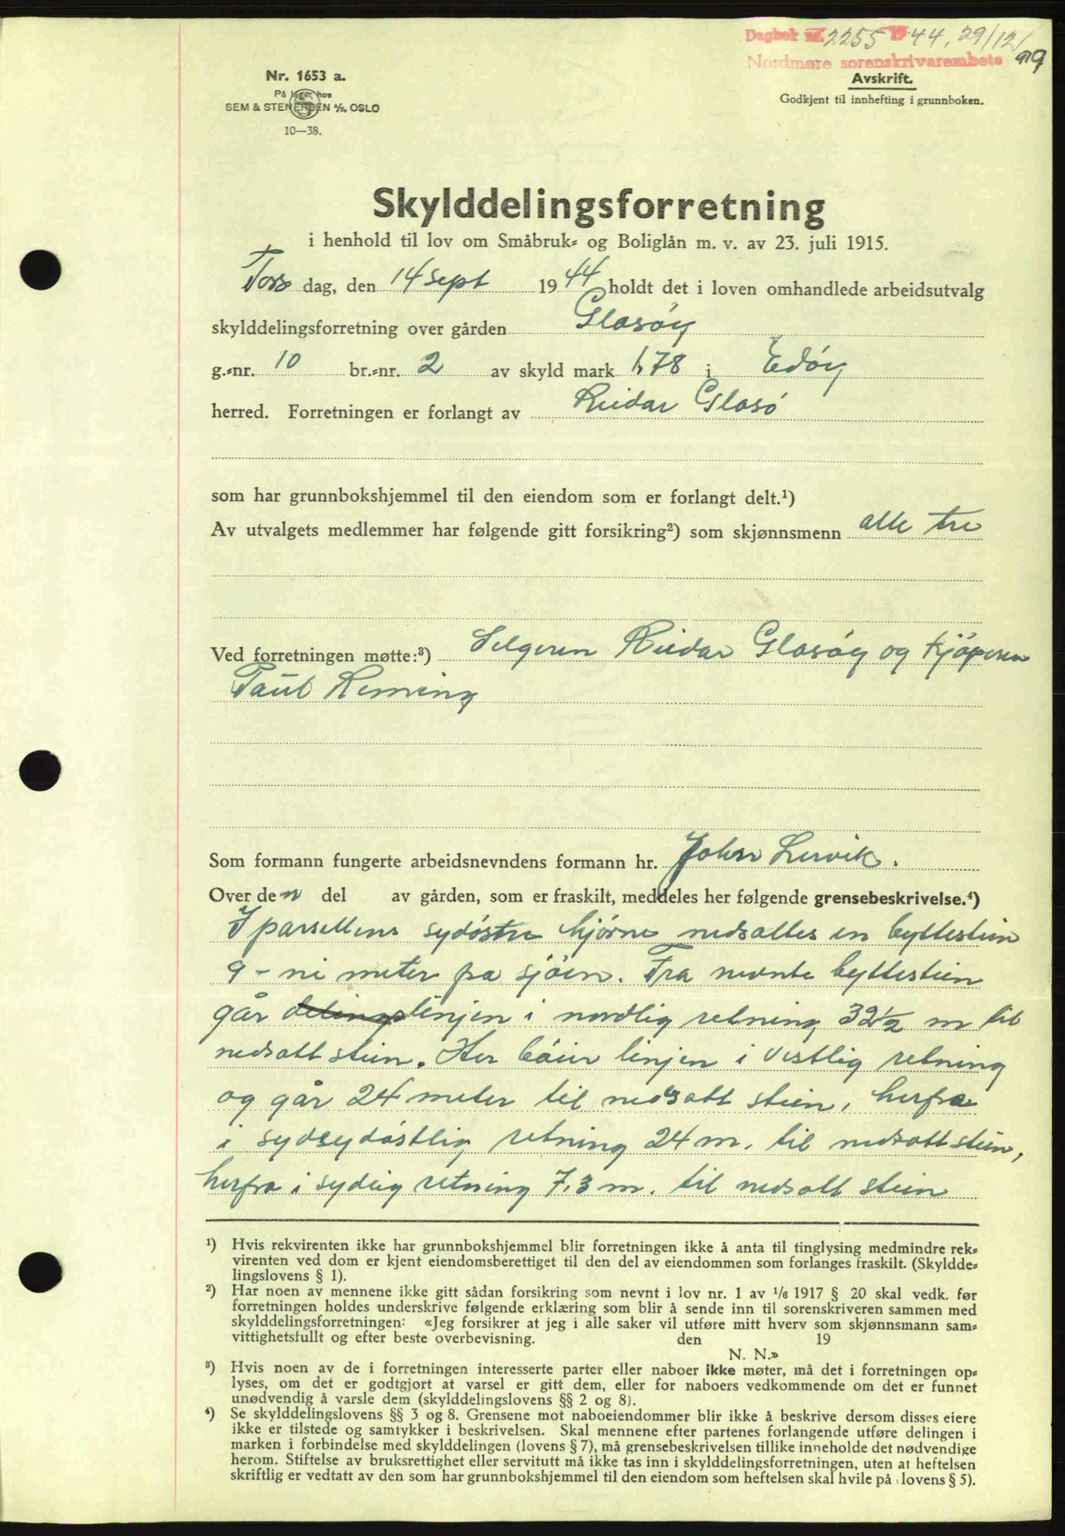 Dagbok nr. 2255 1944, 29/12
Nordmøre sorenskrivarembete 919
Nr. 1653 a.
På lager hos
SEM & STENERSEN A/S, OSLO
10—38.
Avskrift.
Godkjent til innhefting i grunnboken.
Skylddelingsforretning
i henhold til lov om Småbruk- og Boliglån m. v. av 23. juli 1915.
Tors dag, den 14 sept 1944 holdt det i loven omhandlede arbeidsutvalg
skylddelingsforretning over gården Glasöy
g.-nr. 10 br.-nr. 2 av skyld mark 1,78 i Edöy
herred. Forretningen er forlangt av Reidar Glasö
som har grunnbokshjemmel til den eiendom som er forlangt delt.¹)
Av utvalgets medlemmer har følgende gitt forsikring²) som skjønnsmenn alle tre
Ved forretningen møtte:³) Selgeren Reidar Glasöy og kjöperen
Paul Heming
Som formann fungerte arbeidsnevndens formann hr. Johan Lervik.
Over den del av gården, som er fraskilt, meddeles her følgende grensebeskrivelse.⁴)
I parsellens sydöstre hjörne nedsattes en byttestein
9 - ni meter fra sjöen. Fra nevnte byttestein
går delingslinjen i nordlig retning 32½ m til
nedsatt stein. Her böier linjen i vestlig retning
og går 24 meter til nedsatt stein, herfra
i sydsydöstlig retning 24 m. til nedsatt stein,
herfra i sydlig retning 7,3 m. til nedsatt stein
¹) Hvis rekvirenten ikke har grunnbokshjemmel blir forretningen ikke å anta til tinglysing medmindre rek-
virenten ved dom er kjent eiendomsberettiget til den del av eiendommen som forlanges fraskilt. (Skyldde-
lingslovens § 1).
²) Har noen av mennene ikke gitt sådan forsikring som nevnt i lov nr. 1 av ¹/₆ 1917 § 20 skal vedk. før
forretningen holdes underskrive følgende erklæring som blir å sende inn til sorenskriveren sammen med
skylddelingsforretningen: «Jeg forsikrer at jeg i alle saker vil utføre mitt hverv som skjønnsmann sam-
vittighetsfullt og efter beste overbevisning. den 19
N. N.»
³) Hvis noen av de i forretningen interesserte parter eller naboer ikke møter, må det i forretningen op-
lyses, om det er godtgjort at varsel er gitt dem, eller for naboers vedkommende om det er funnet
unødvendig å varsle dem (skylddelingslovens §§ 2 og 8).
⁴) Se skylddelingslovens §§ 3 og 8. Grensene mot naboeiendommer blir ikke å beskrive dersom disses eiere
ikke er tilstede og samtykker i beskrivelsen. Skal mennene efter partenes forlangende utføre delingen i
marken i forbindelse med skylddelingen (lovens § 7), må grensebeskrivelsen tillike inneholde det nødvendige
herom. Stiftelse av bruksrettighet eller servitutt må ikke tas inn i skylddelingsforretningen, uten at heftelsen
skriftlig er vedtatt av den som har grunnbokshjemmel til den eiendom som heftelsen skal hvile på (lovens § 5).